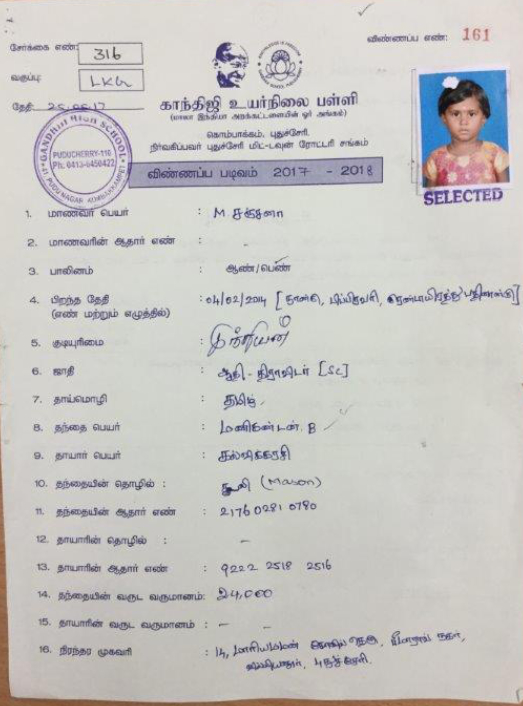 சேர்க்கை எண்: 316
விண்ணப்ப எண்: 161
வகுப்பு: LKG
தேதி:
காந்திஜி உயர்நிலை பள்ளி
(மாலா இந்தியா அறக்கட்டளையின் ஓர் அங்கம்)
கொம்பாக்கம், புதுச்சேரி.
நிர்வகிப்பவர் புதுச்சேரி மிட்-டவுன் ரோட்டரி சங்கம்
GANDHIJI HIGH SCHOOL
PUDUCHERRY-110
Ph: 0413-6450423
விண்ணப்ப படிவம் 2017 - 2018
SELECTED
1. மாணவர் பெயர் : M
2. மாணவரின் ஆதார் எண் : -
3. பாலினம் : ஆண்/பெண்
4. பிறந்த தேதி : 04/02/2014 [நான்கு, பிப்ரவரி,
(எண் மற்றும் எழுத்தில்)
5. குடியுரிமை : இந்தியன்
6. ஜாதி : ஆதி-திராவிடர் [SC]
7. தாய்மொழி : தமிழ்.
8. தந்தை பெயர் : மணிகண்டன். B
9. தாயார் பெயர் : கல்விக்கரசி
10. தந்தையின் தொழில் : கூலி (Mason)
11. தந்தையின் ஆதார் எண் : 2176 0281 0780
12. தாயாரின் தொழில் : -
13. தாயாரின் ஆதார் எண் : 9222 2518 2516
14. தந்தையின் வருட வருமானம்: 24,000
15. தாயாரின் வருட வருமானம் : - -
16. நிரந்தர முகவரி : 14, மாரியம்மன் கோவில் தெரு, நகர்,
புதுச்சேரி.